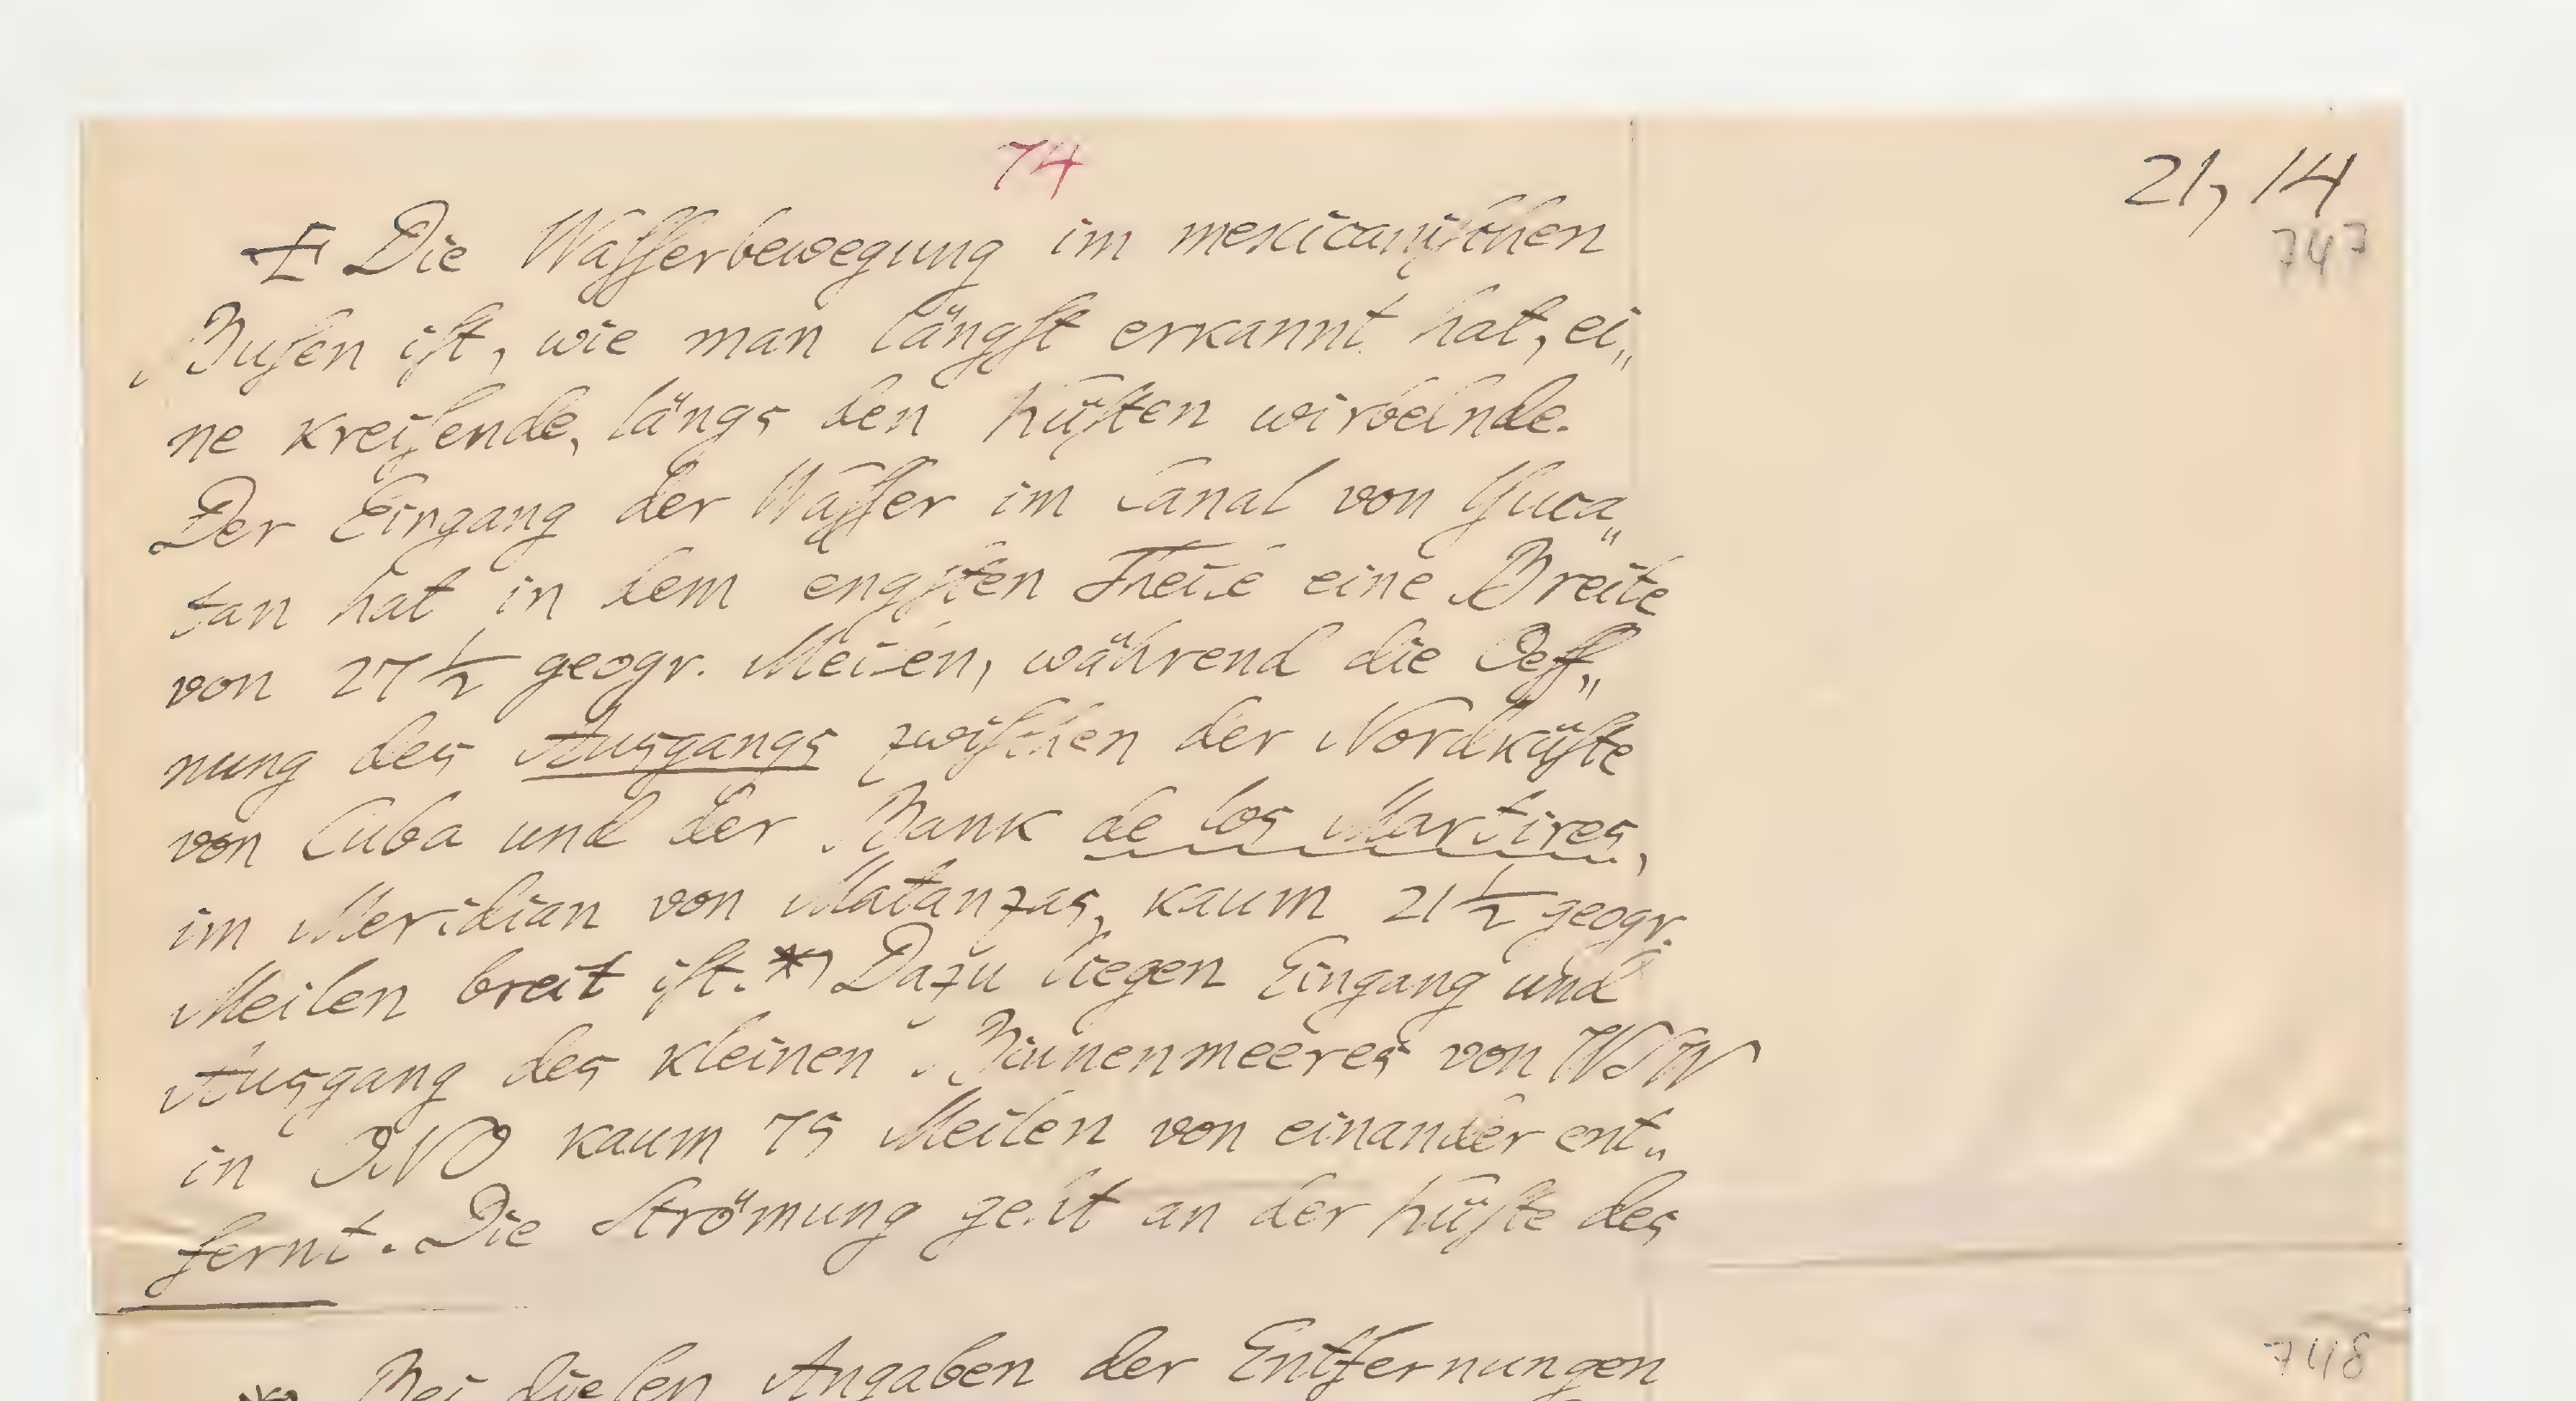 74
21, 14
747
Die Waſſerbewegung im mexicaniſchen
Buſen iſt, wie man längſt erkannt hat, ei„
ne kreiſende, längs den Küſten wirbelnde.
Der Eingang der Waſſer im Canal von Yuca„
tan hat in dem engſten Theile eine Breite
von 27 1/2 geogr. Meilen, während die Oeff„
nung des Ausgangs zwiſchen der Nordküſte
von Cuba und der Bank de los Martires,
im Meridian von Matanzas, kaum 21 1/2 geogr.
Meilen breit iſt.*) Dazu liegen Eingang und
Ausgang des kleinen Binnenmeeres von WSW
in ONO kaum 75 Meilen von einander ent„
fernt. Die Strömung geht an der Küſte des
748
Bei dieſen Angaben der Entfernungen